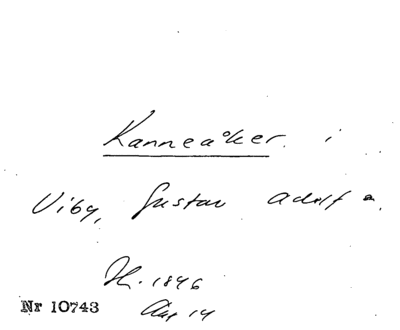 Kanneåker i
Viby, Gustav Adolf s.
H. 1846
Nr 10743 Aug 14